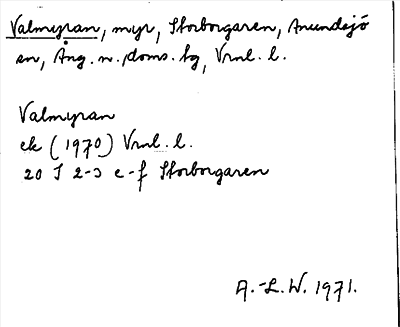 Valmyran, myr, Storborgaren, Anundsjö
sn, Ång. n. doms. bg, Vrnl. l.
Valmyran
ek (1970) Vrnl. l.
20 I 2-3 e-f Storborgaren
A.-L.W. 1971.